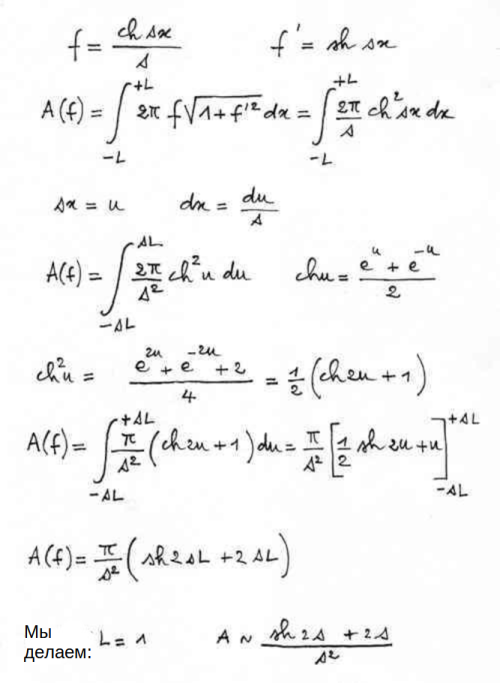 f = ch sx / s    f' = sh sx
A(f) = ∫_{-L}^{+L} 2π f √(1+f'²) dx = ∫_{-L}^{+L} 2π/s ch² sx dx
sx = u    dx = du/s
A(f) = ∫_{-sL}^{sL} 2π/s² ch² u du    ch u = (e^u + e^{-u}) / 2
ch² u = (e^{2u} + e^{-2u} + 2) / 4 = 1/2 (ch 2u + 1)
A(f) = ∫_{-sL}^{+sL} π/s² (ch 2u + 1) du = π/s² [1/2 sh 2u + u]_{-sL}^{+sL}
A(f) = π/s² (sh 2sL + 2sL)
Мы
делаем: L = 1    A ~ (sh 2s + 2s) / s²